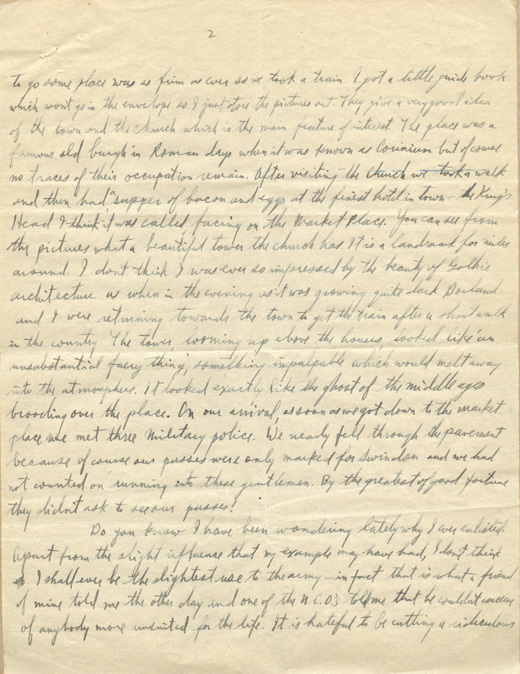 2
to go some place was as firm as ever so we took a train. I got a little guide book
which wont go in the envelope so I just tore the pictures out. They give a very good idea
of the town and the church which is the main feature of interest. The place was a
famous old burgh in Roman days when it was known as Corinium but of course
no traces of their occupation remain. After visiting the church we took a walk
and then had a supper of bacon and eggs at the finest hotel in town – the King's
Head I think it was called facing on the Market Place. You can see from
the pictures what a beautiful tower the church has. It is a landmark for miles
around. I don't think I was ever so impressed by the beauty of Gothic
architecture as when in the evening as it was growing quite dark Dorland
and I were returning towards the town to get the train after a short walk
in the country. The tower, looming up above the houses, looked like an
unsubstantial faery thing, something impalpable which would melt away
into the atmosphere. It looked exactly like the ghost of the middle ages
brooding over the place. On our arrival, as soon as we got down to the market
place we met three Military police. We nearly fell through the pavement
because of course our passes were only marked for Swindon and we had
not counted on running into these gentlemen. By the greatest of good fortune
they didn't ask to see our passes!
Do you know I have been wondering lately why I ever enlisted.
Apart from the slight influence that my example may have had, I don't think
I shall ever be the slightest use to the army – in fact that is what a friend
of mine told me the other day and one of the N.C.O's told me that he couldn't conceive
of anybody more unsuited for the life. It is hateful to be cutting a ridiculous